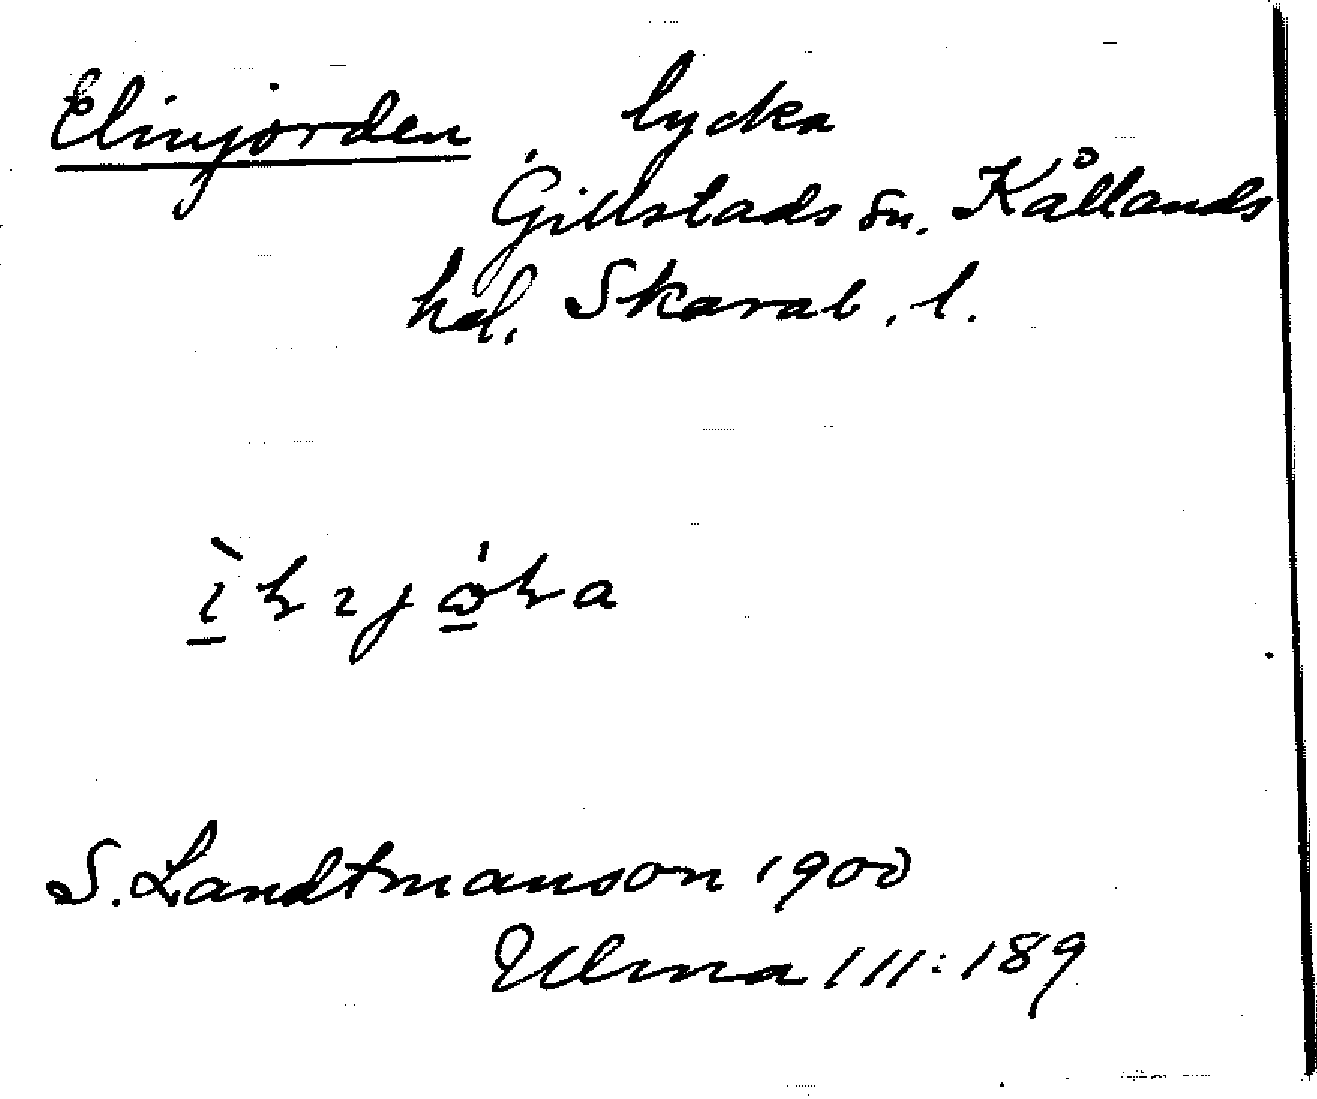 Elinjorden lycka
Gillstads sn. Kållands
hd. Skarab. l.
S. Landtmanson 1900
Ulma 111:189